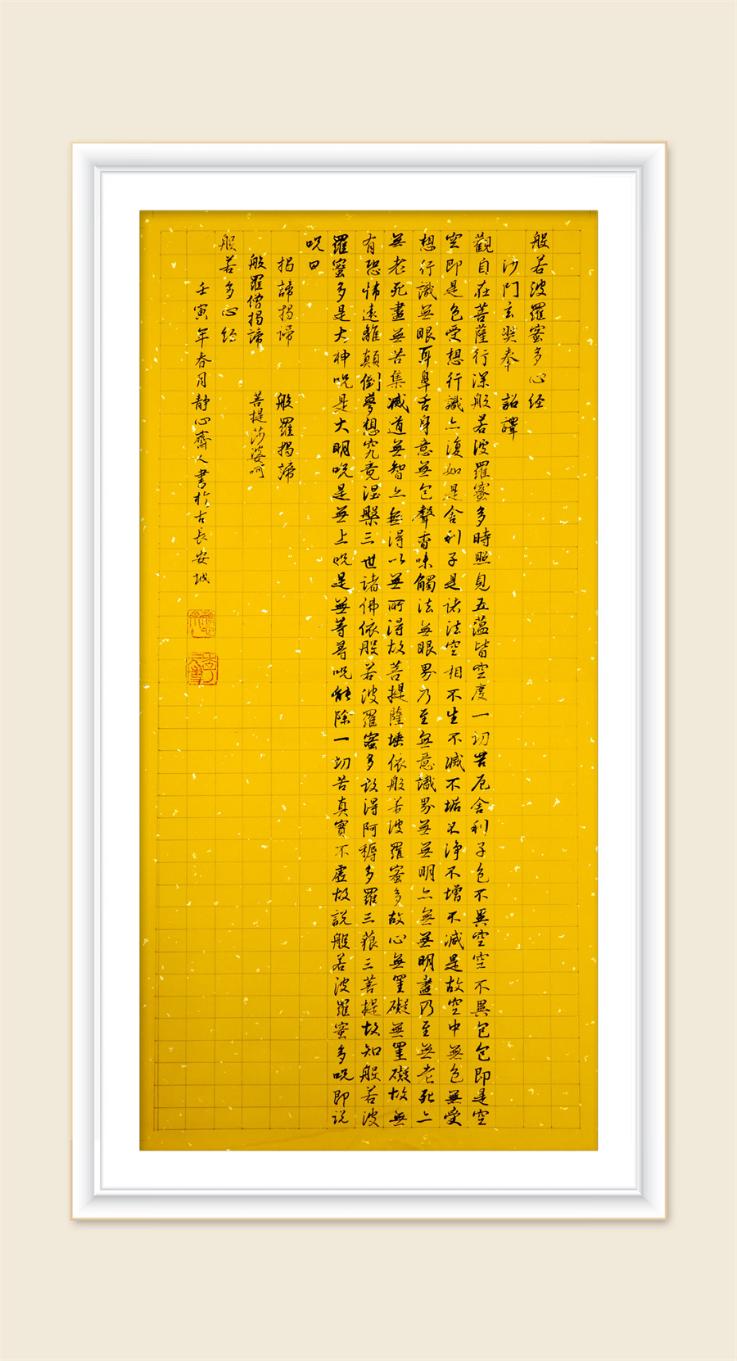 般若波羅蜜多心经
沙門玄奘奉 詔譯
觀自在菩薩行深般若波羅蜜多時照見五蘊皆空度一切苦厄舍利子色不異空空不異色色即是空
空即是色受想行識亦復如是舍利子是諸法空相不生不滅不垢不淨不增不減是故空中無色無受
想行識無眼耳鼻舌身意無色聲香味觸法無眼界乃至無意識界無無明亦無無明盡乃至無老死亦
無老死盡無苦集滅道無智亦無得以無所得故菩提薩埵依般若波羅蜜多故心無罣礙無罣礙故無
有恐怖遠離顛倒夢想究竟涅槃三世諸佛依般若波羅蜜多故得阿耨多羅三藐三菩提故知般若波
羅蜜多是大神咒是大明咒是無上咒是無等等咒能除一切苦真實不虛故說般若波羅蜜多咒即说
咒曰
揭諦揭諦 般羅揭諦
般羅僧揭諦 菩提莎婆呵
般若多心经
壬寅年春月静心齋人書於古長安城